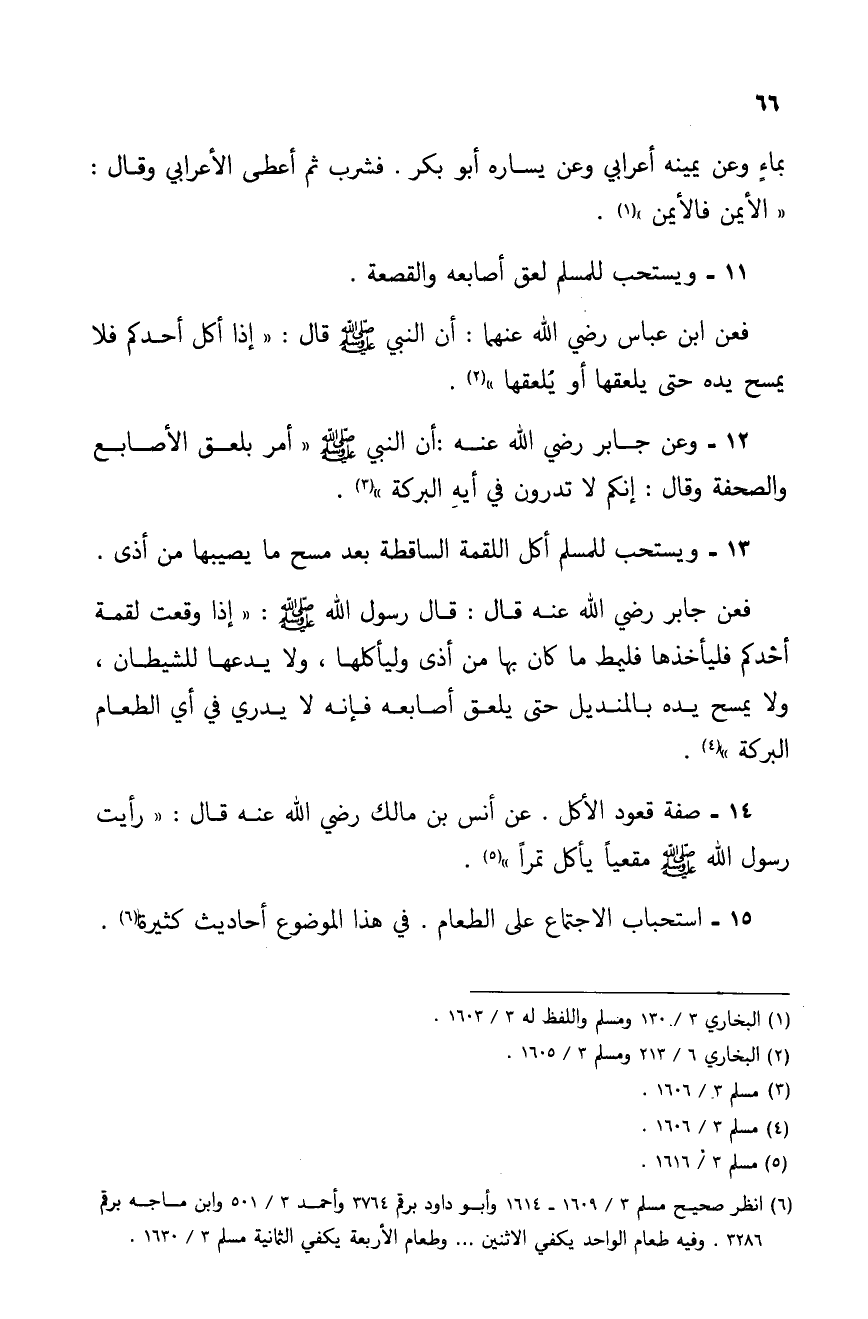 ٦٦
بماءٍ وعن يمينه أعرابي وعن يساره أبو بكر . فشرب ثم أعطى الأعرابي وقال :
« الأيمن فالأيمن »(١) .
١١ - ويستحب للمسلم لعق أصابعه والقصعة .
فعن ابن عباس رضي الله عنهما : أن النبي ﷺ قال : « إذا أكل أحدكم فلا
يمسح يده حتى يلعقها أو يُلعقها »(٢) .
١٢ - وعن جابر رضي الله عنه :أن النبي ﷺ « أمر بلعق الأصابع
والصحفة وقال : إنكم لا تدرون في أيهِ البركة »(٣) .
١٣ - ويستحب للمسلم أكل اللقمة الساقطة بعد مسح ما يصيبها من أذى .
فعن جابر رضي الله عنه قال : قال رسول الله ﷺ : « إذا وقعت لقمة
أحدكم فليأخذها فليمط ما كان بها من أذى وليأكلها ، ولا يدعها للشيطان ،
ولا يمسح يده بالمنديل حتى يلعق أصابعه فإنه لا يدري في أي الطعام
البركة »(٤) .
١٤ - صفة قعود الأكل . عن أنس بن مالك رضي الله عنه قال : « رأيت
رسول الله ﷺ مقعياً يأكل تمراً »(٥) .
١٥ - استحباب الاجتماع على الطعام . في هذا الموضوع أحاديث كثيرة(٦) .
(١) البخاري ٣ / ١٣٠ ومسلم واللفظ له ٣ / ١٦٠٣ .
(٢) البخاري ٦ / ٢١٣ ومسلم ٣ / ١٦٠٥ .
(٣) مسلم ٣ / ١٦٠٦ .
(٤) مسلم ٣ / ١٦٠٦ .
(٥) مسلم ٣ / ١٦١٦ .
(٦) انظر صحيح مسلم ٣ / ١٦٠٩ - ١٦١٤ وأبو داود برقم ٣٧٦٤ وأحمد ٣ / ٥٠١ وابن ماجه برقم
٣٢٨٦ . وفيه طعام الواحد يكفي الاثنين ... وطعام الأربعة يكفي الثانية مسلم ٣ / ١٦٣٠ .